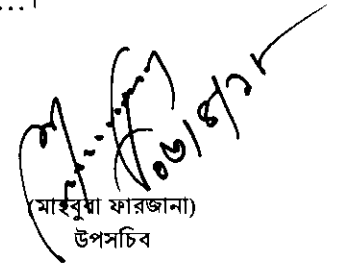 ...।
(মাহবুবা ফারজানা)
উপসচিব